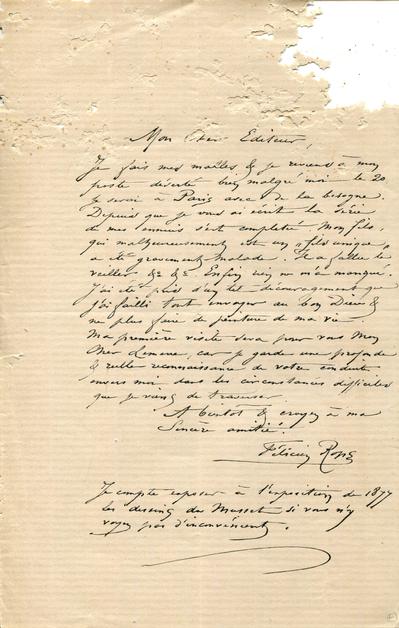 Mon Cher Editeur,
Je fais mes malles & je reviens à mon
poste déserté bien malgré moi. le 20
je serai à Paris avec de la besogne.
Depuis que je vous ai écrit la série
de mes ennuis s'est complétée. Mon fils,
qui malheureusement est un "fils unique"
a été gravement malade. Il a fallu le
veiller &c &c. Enfin rien ne m'a manqué.
J'ai été pris d'un tel découragement que
j'ai failli tout envoyer au bon Dieu &
ne plus faire de peinture de ma vie
Ma première visite sera pour vous Mon
Cher Lemerre, car je garde une profonde
& réelle reconnaissance de votre conduite
envers moi dans les circonstances difficiles
que je viens de traverser.
A bientot & croyez à ma
Sincère amitié!
Félicien Rops
Je compte exposer à l'exposition de 1877
les dessins du Musset si vous n'y
voyez pas d'inconvénients.